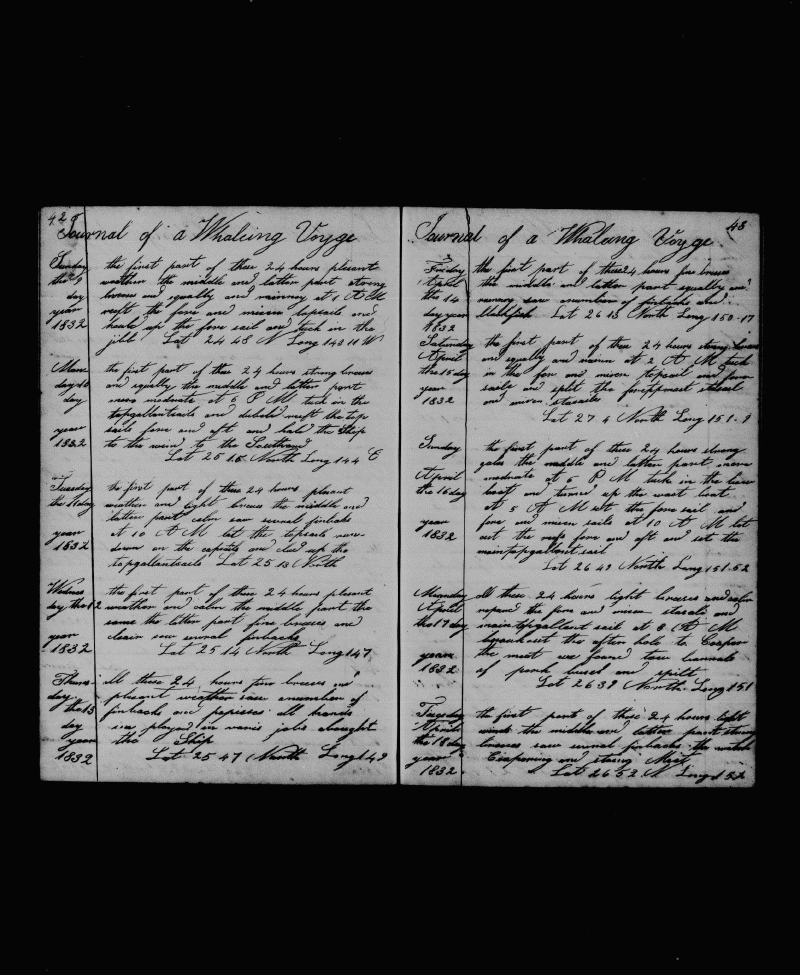 42
Journal of a Whaleing Voyge
Sunday the first part of these 24 hours plesent
the 9 weather the middle and latter part strong
day breezes and squally and rainney at 1 A M
year reeft the fore and misen topsails and
1832 hauld up the fore sail and tuck in the
jibb Lat 24 48 N Long 142 11 W
Mon the first part of these 24 hours strong breezes
day 10 and squally the middle and latter part
day more moderate at 5 P M tuck in the
topgallantsails and duble reeft the top
year sails fore and aft and held the Ship
1832 to the wind to the Southward
Lat 25 15 North Long 144
Tuesday the first part of these 24 hours plesent
the 11 day weather and light breezes the middle and
latter part calm saw serval finbaks
year at 10 A M let the topsails
1832 down on the and clued up the
topgallantsails Lat 25 13 North
Wednes the first part of these 24 hours plesent
day the 12 weather and calm the middle part the
same the latter part fine breezes and
year clear saw serval finbacks
1832 Lat 25 14 North Long 147
Thurs all these 24 hours fine breezes and
day plesent weather saw anumber of
the 13 finbacks and all hands
day employed on jobs abought
year the Ship
1832 Lat 25 47 North Long 149
43
Journal of a Whaleing Voyge
Friday the first part of these 24 hours fine breezes
April the middle and latter part squally and
the 14 saw anumber of finbacks and
day year Lat 26 13 North Long 150-17
1832
Saturday the first part of these 24 hours strong breezes
April and squally and at 2 A M tuck
the 15 day in the fore and misen topsail and fore
year sails and split the foretopmost staisail
1832 and misen staisail
Lat 27 4 North Long 151-9
Sunday the first part of these 24 hours strong
gales the middle and latter part more
April moderate at 5 P M tuck in the
the 16 day boat and turned up the wast boat
at 5 A M set the fore sail and
year fore and misen sails at 10 A M let
1832 out the reefs fore and aft and set the
maintopgallantsail
Lat 26 49 North Long 151-52
Munday all these 24 hours light breezes and calm
April the fore and misen staisals and
the 17 day maintopgallant sail at 8 A M
brackout the after hole to Cooper
year the meat we found two barrals
1832 of pork bused and spilt
Lat 26 39 North Long 151
Tuesday the first part of these 24 hours light
April winds the middle and latter part strong
the 18 day breezes saw serval finbacks the watch
year Coopering and stowing Meat
1832 Lat 26 52 N Long 152